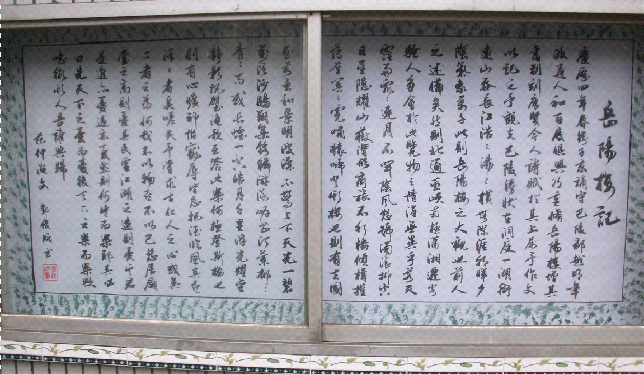 岳陽樓記
慶曆四年春滕子京謫守巴陵郡越明年
政通人和百廢俱興乃重修岳陽樓增其
舊制刻唐賢今人詩賦於其上屬予作文
以記之予觀夫巴陵勝狀在洞庭一湖銜
遠山吞長江浩浩湯湯橫無際涯朝暉夕
陰氣象萬千此則岳陽樓之大觀也前人
之述備矣然則北通巫峽南極瀟湘遷客
騷人多會於此覽物之情得無異乎若夫
霪雨霏霏連月不開陰風怒號濁浪排空
日星隱耀山岳潛形商旅不行檣傾楫摧
薄暮冥冥虎嘯猿啼登斯樓也則有去國
至若春和景明波瀾不驚上下天光一碧
萬頃沙鷗翔集錦鱗游泳岸芷汀蘭郁
青青而或長煙一空皓月千里浮光耀金
靜影沉璧漁歌互答此樂何極登斯樓也
則有心曠神怡寵辱皆忘把酒臨風其喜
洋洋者矣嗟夫予嘗求古仁人之心或異
二者之為何哉不以物喜不以己悲居廟
堂之高則憂其民處江湖之遠則憂其君
是進亦憂退亦憂然則何時而樂耶其必
曰先天下之憂而憂後天下之樂而樂歟
噫微斯人吾誰與歸
范仲淹文 書